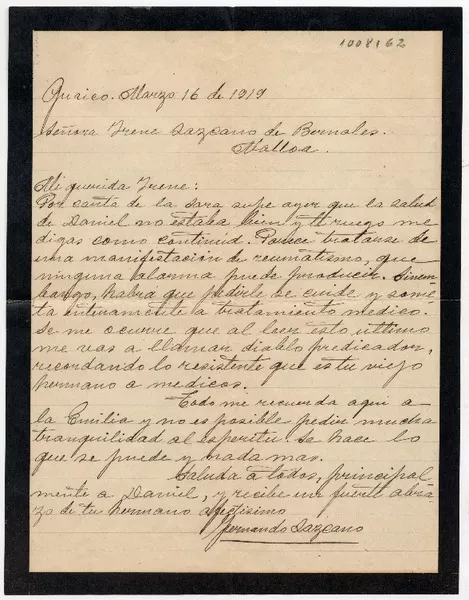 1008162
Quaico. Marzo 16 de 1919
Señora Irene Lazcano de Bernales.
Malloa.
Mi querida Irene:
Por carta de la Sara supe ayer que la salud
de Daniel no estaba bien y te ruego me
digas como continua. Parece tratarse de
una manifestación de reumatismo, que
ninguna alarma puede producir. Sinem-
bargo, habra que pedirle se cuide y some
ta enteramente a tratamiento medico.
Se me ocurre que al leer esto ultimo
me vas a llamar diablo predicador,
recordando lo resistente que es tu viejo
hermano a medicos.
Todo me recuerda aqui a
la Emilia y no es posible pedir mucha
tranquilidad al espiritu. Se hace lo
que se puede y nada mas.
Saluda a todos, principal
mente a Daniel, y recibe un fuerte abra-
zo de tu hermano afectisimo
Fernando Lazcano